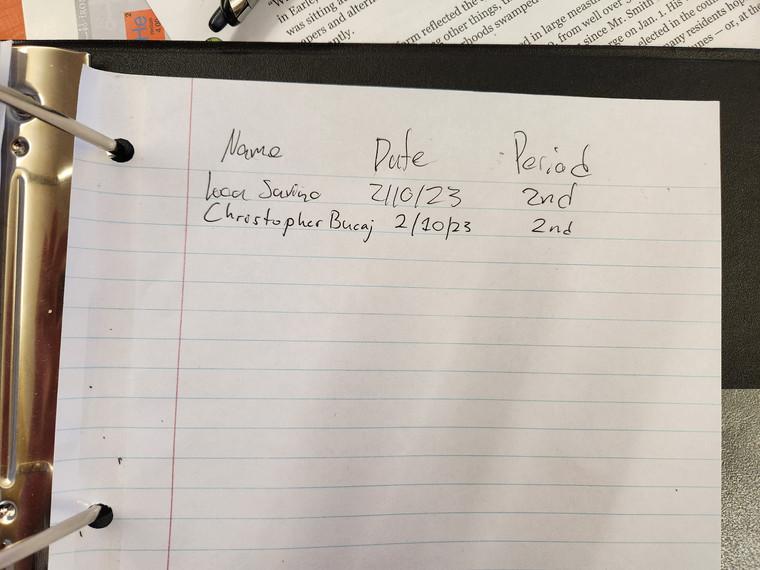 "W
in Earle
was sitting at
opers and altern
ently.
orm reflected the s
g other things, th
rhoods swamped
d in large measu
, from well over
since Mr. Smith
rge on Jan. 1. His
elected in the coun
many residents hop
pes — or, at th
2
He
4.00
Name Date Period
Luca Savino 2/10/23 2nd
Christopher Bucaj 2/10/23 2nd